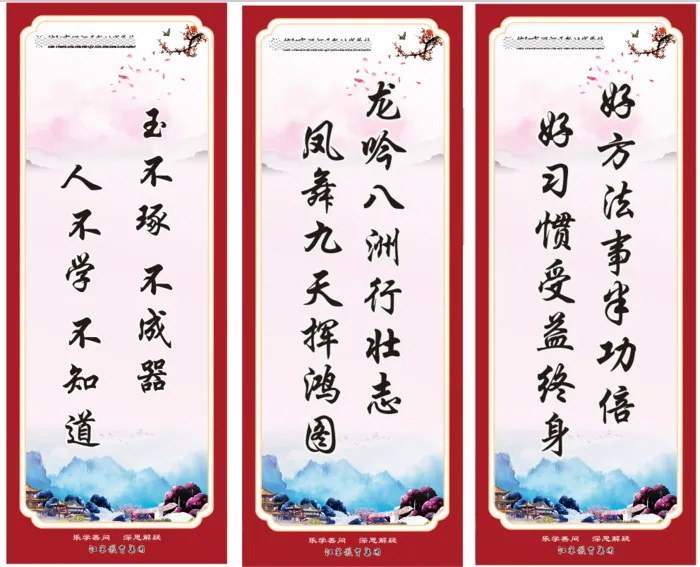 玉不琢 不成器
人不学 不知道
乐学善问 深思解疑
龙吟八洲行壮志
凤舞九天挥鸿图
乐学善问 深思解疑
好方法事半功倍
好习惯受益终身
乐学善问 深思解疑